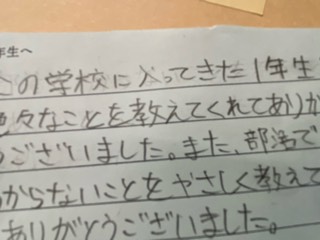 年生へ
この学校に入ってきた1年生
色々なことを教えてくれてありが
うございました。また、部活で
からないことをやさしく教えて
ありがとうございました。